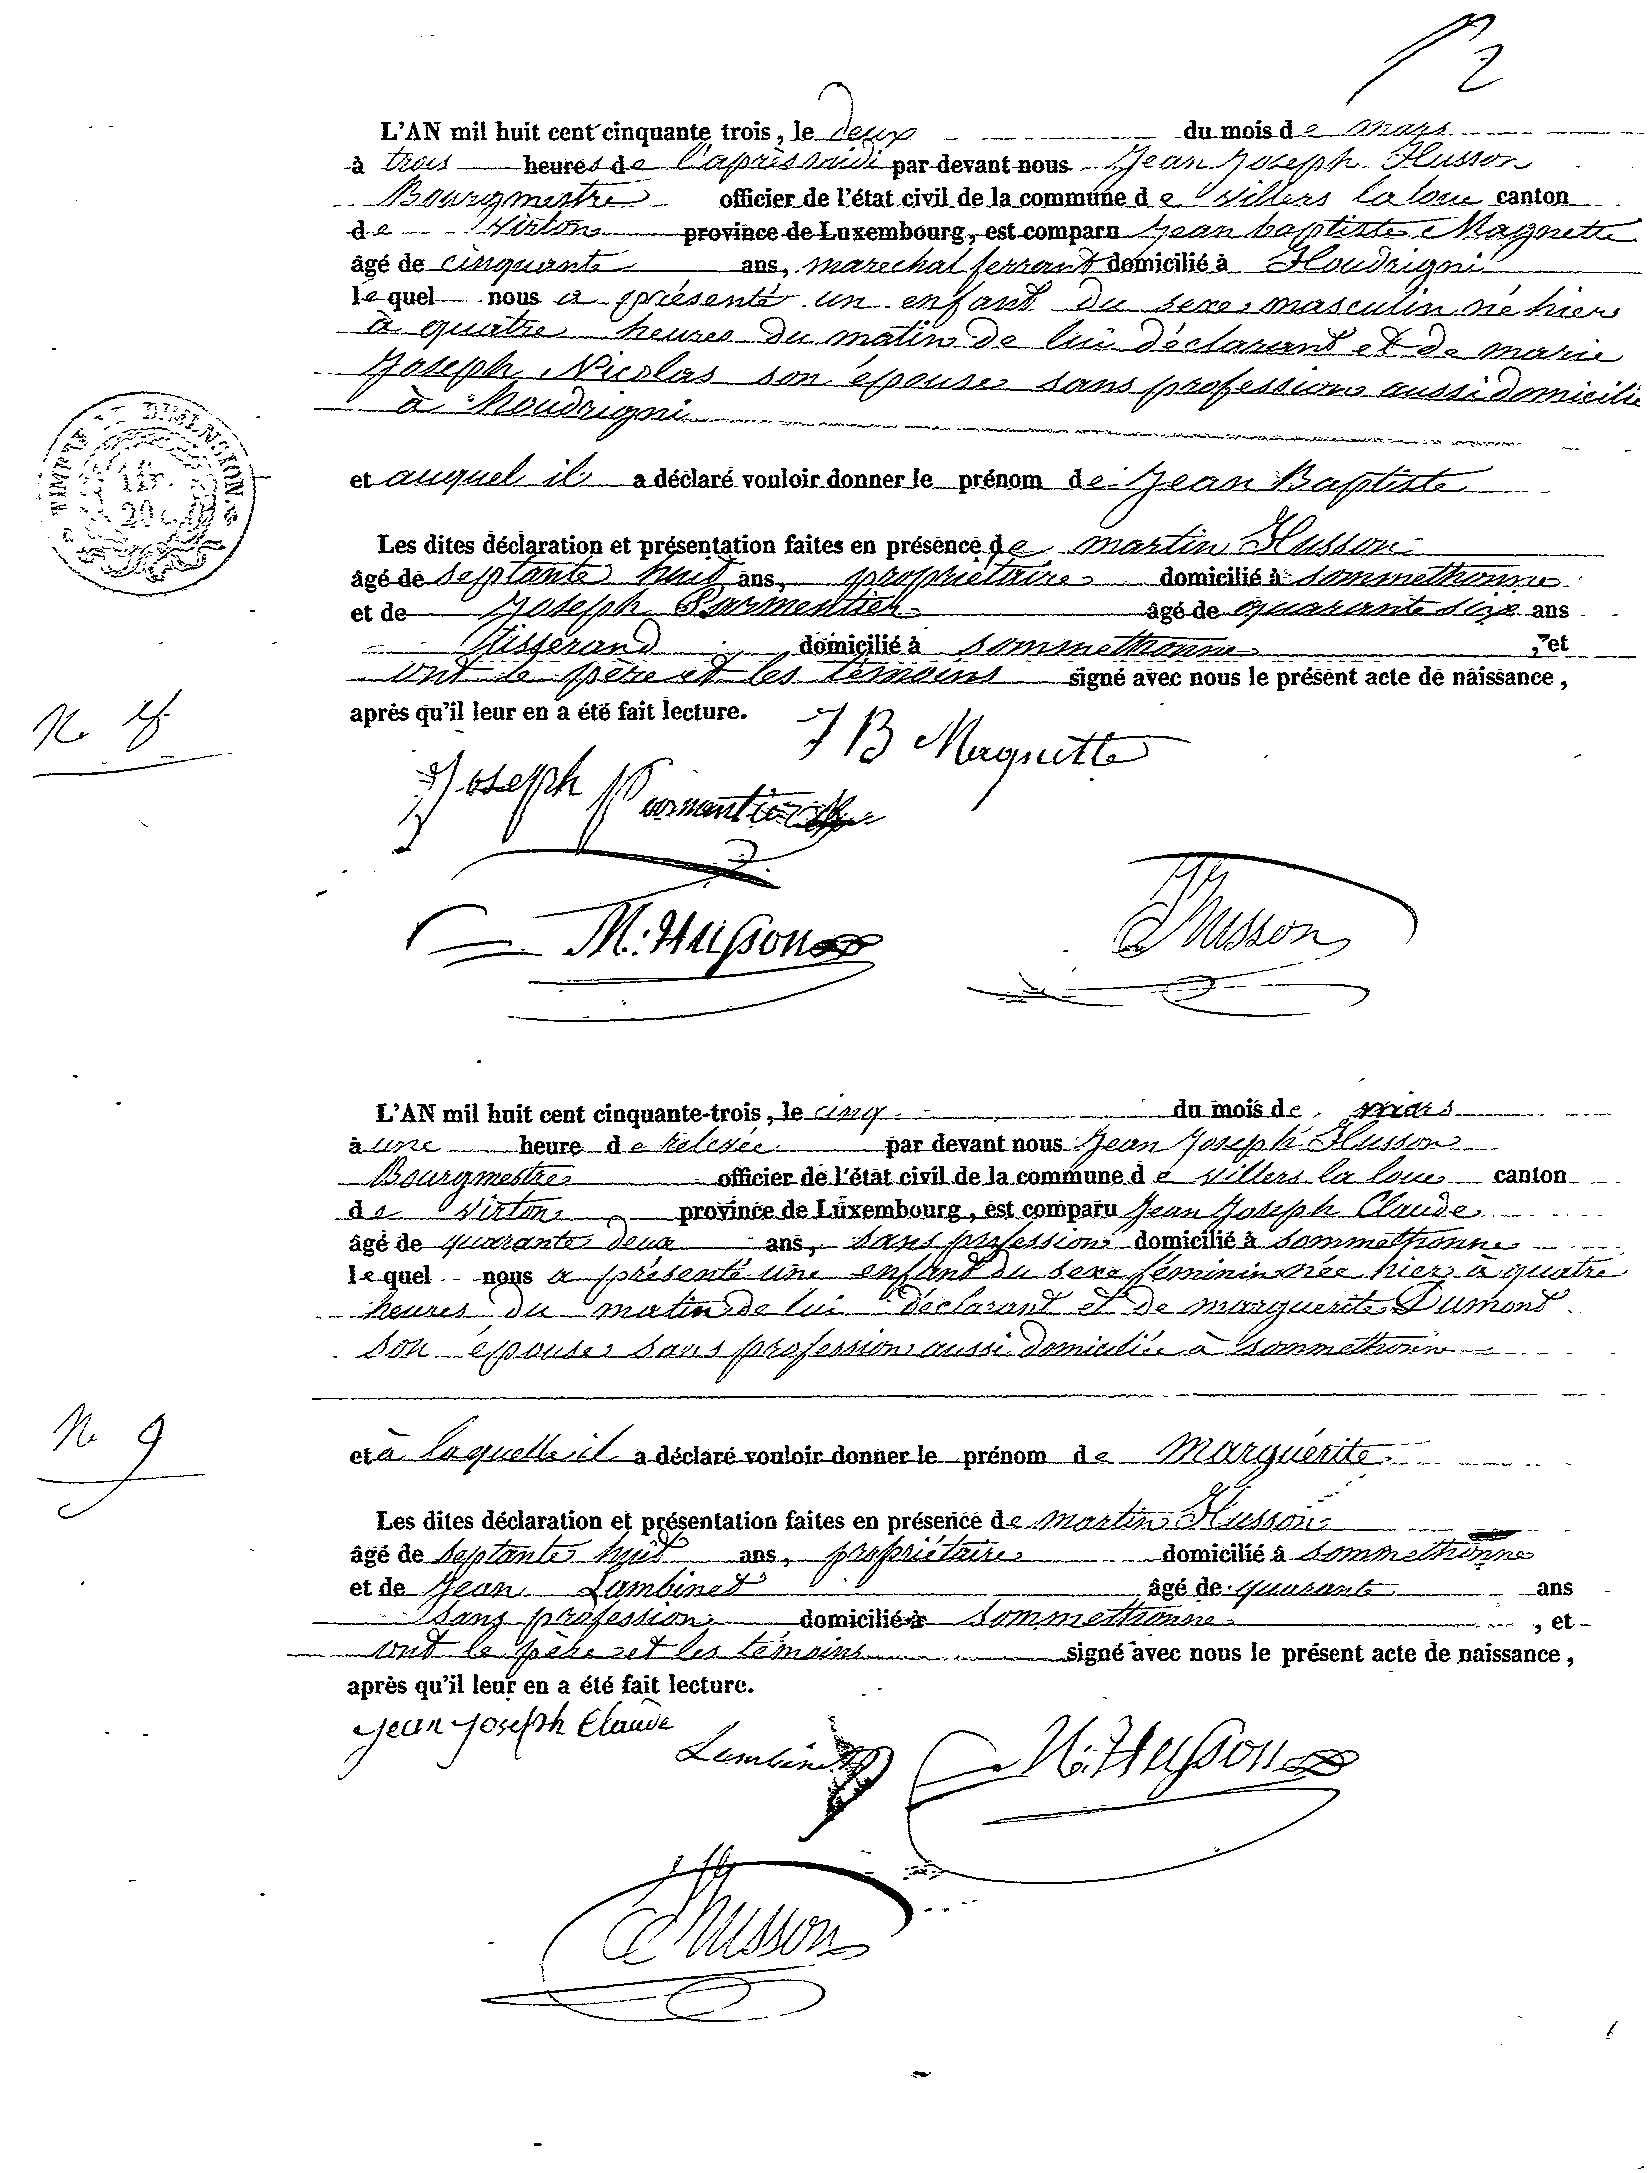 2
L'AN mil huit cent cinquante trois, le deux du mois de mars
à trois heures de l'après midi par devant nous Jean Joseph Husson
Bourgmestre officier de l'état civil de la commune de Villers la loue canton
de Virton province de Luxembourg, est comparu Jean baptiste Magnette
âgé de cinquante ans, marechal ferrant domicilié à Houdrigni
le quel nous a présenté un enfant du sexe masculin né hier
à quatre heures du matin de lui déclarant et de marie
Joseph Nicolas son épouse sans profession aussi domicilié
à houdrigni
et auquel il a déclaré vouloir donner le prénom de Jean Baptiste
Les dites déclaration et présentation faites en présence de martin Husson
âgé de septante huit ans, propriétaire domicilié à sommethonne
et de Joseph Parmentier âgé de quarante six ans
Tisserand domicilié à sommethonne, et
ont le père et les témoins signé avec nous le présent acte de naissance,
après qu'il leur en a été fait lecture.
TIMBRE DIMENSION.
1 fr.
20 c
N. 8
J B Magnette
Joseph Parmentier
M: Husson
Husson
L'AN mil huit cent cinquante-trois, le cinq du mois de mars
à une heure de relevée par devant nous Jean Joseph Husson
Bourgmestre officier de l'état civil de la commune de villers la loue canton
de virton province de Luxembourg, est comparu Jean Joseph Claude
âgé de quarante deux ans, sans profession domicilié à sommethonne
le quel nous a présenté une enfant du sexe féminin née hier à quatre
heures du matin de lui déclarant et de marguerite Dumont
son épouse sans profession aussi domiciliée à sommethonne
N. 9
et à laquelle il a déclaré vouloir donner le prénom de Marguérite
Les dites déclaration et présentation faites en présence de martin Husson
âgé de septante huit ans, propriétaire domicilié à sommethonne
et de Jean Lambinet âgé de quarante ans
sans profession domicilié à sommethonne, et
ont le père et les témoins signé avec nous le présent acte de naissance,
après qu'il leur en a été fait lecture.
Jean Joseph Claude
Lambinet
M: Husson
Husson